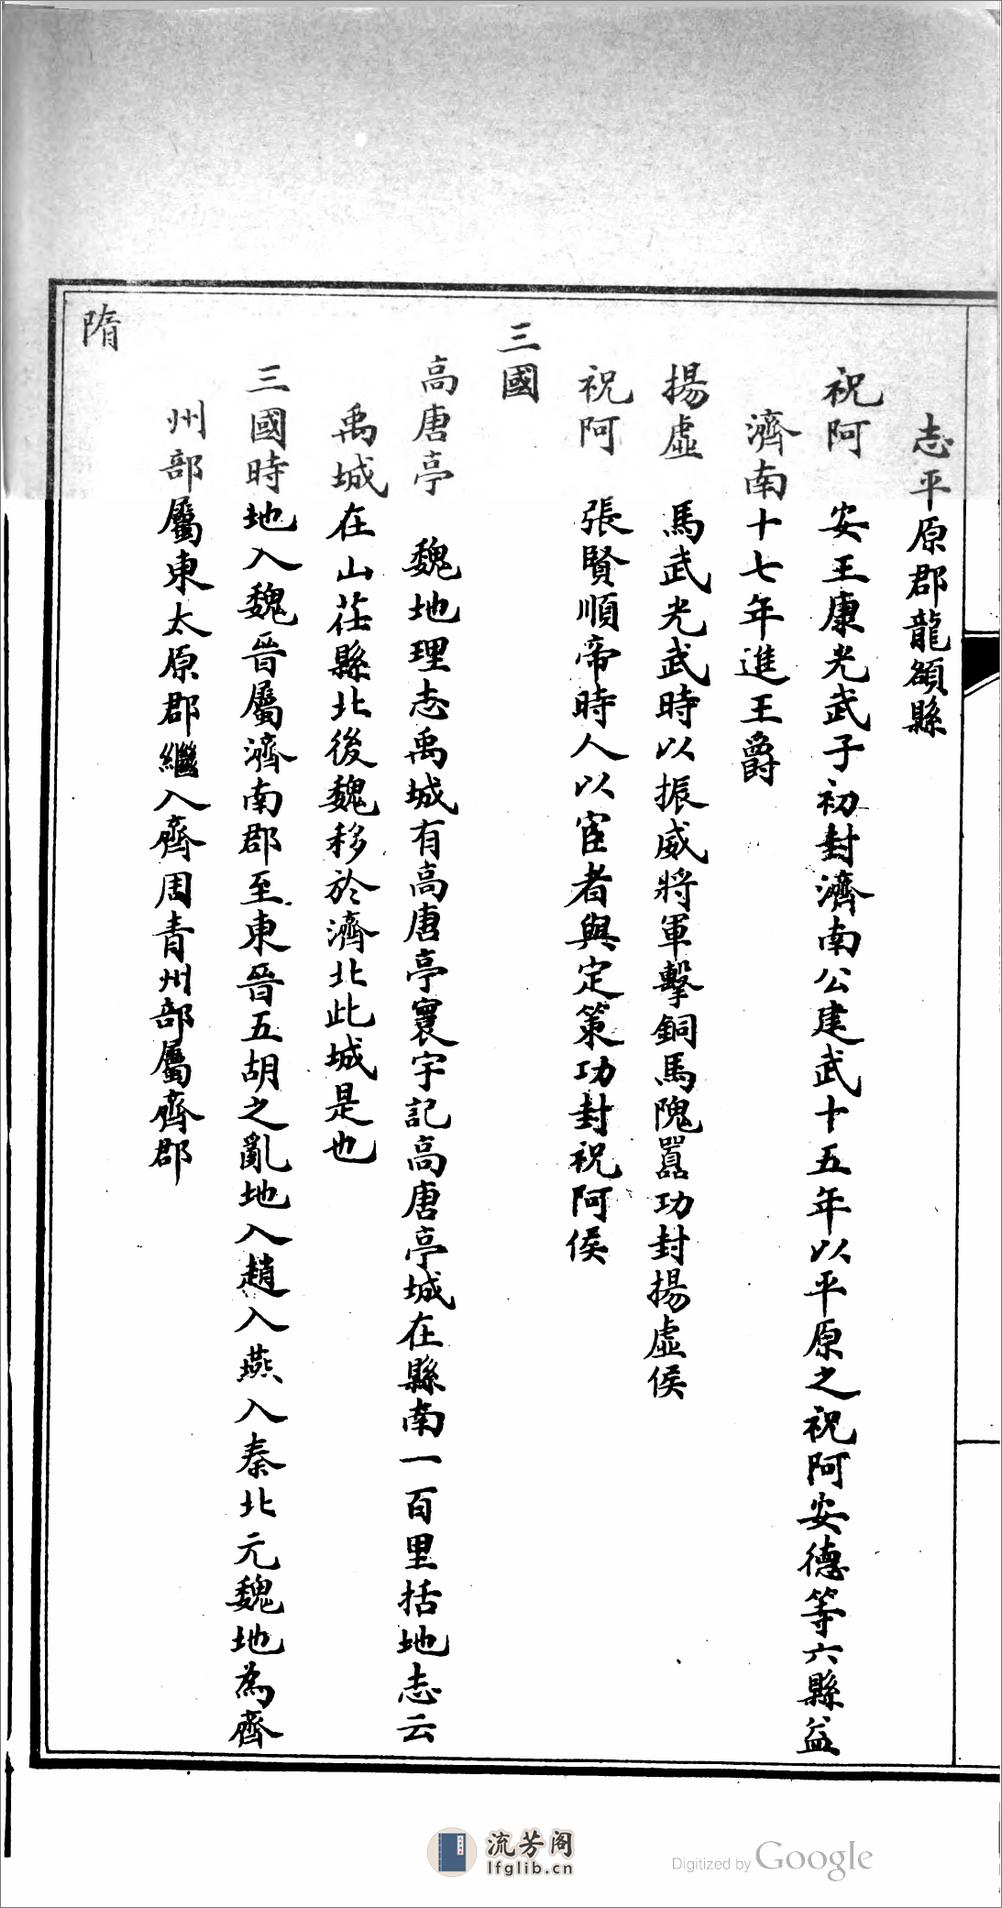 志平原郡龍頟縣
祝阿　安王康光武子初封濟南公建武十五年以平原之祝阿安德等六縣益
濟南十七年進王爵
揚虛　馬武光武時以振威將軍擊銅馬隗囂功封揚虛侯
祝阿　張賢順帝時人以宦者與定策功封祝阿侯
三國
高唐亭　魏地理志禹城有高唐亭寰宇記高唐亭城在縣南一百里括地志云
禹城在山茌縣北後魏移於濟北此城是也
三國時地入魏晉屬濟南郡至東晉五胡之亂地入趙入燕入秦北元魏地為齊
州部屬東太原郡繼入齊周青州部屬齊郡
隋
流芳阁
lfglib.cn
Digitized by Google